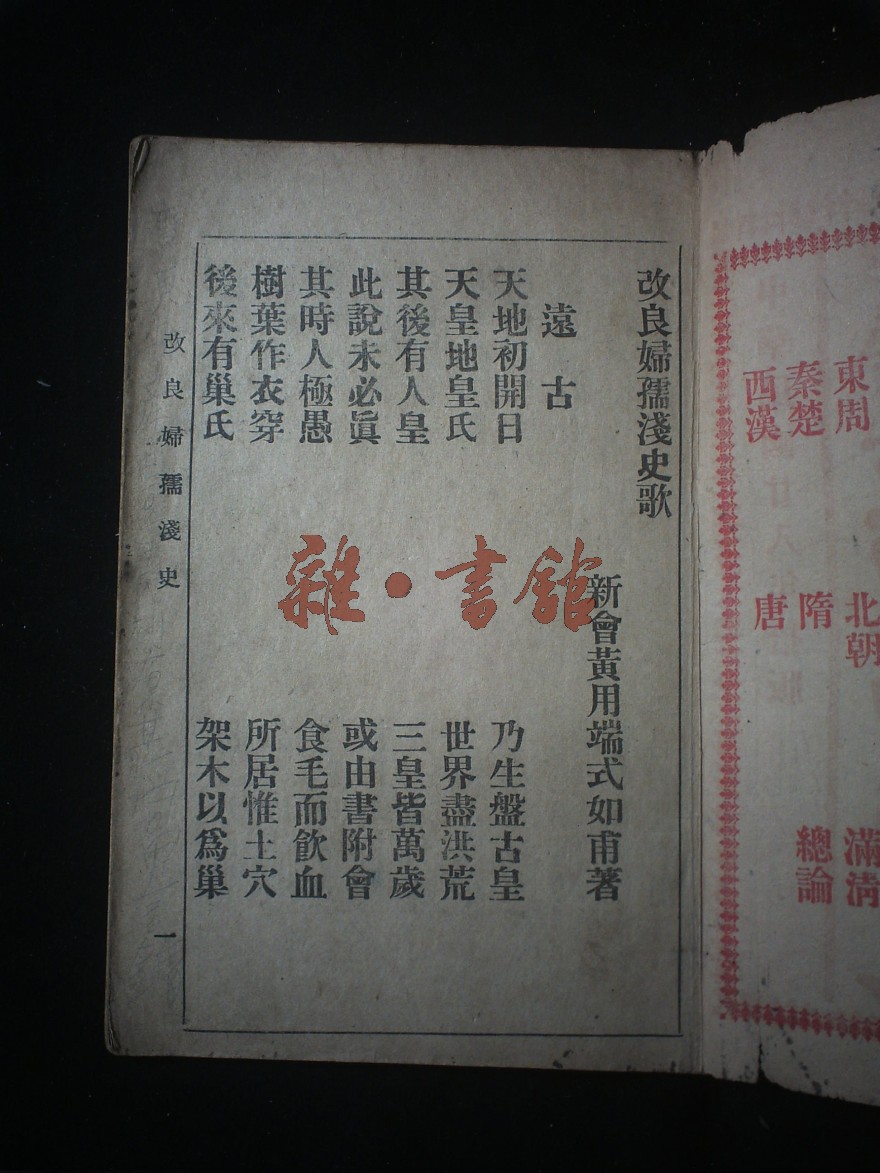 東周
秦楚
西漢
北朝
隋
唐
滿淸
總論
改良婦孺淺史歌
新會黃用端式如甫著
遠古
天地初開日 乃生盤古皇
天皇地皇氏 世界盡洪荒
其後有人皇 三皇皆萬歲
此說未必眞 或由書附會
其時人極愚 食毛而飮血
樹葉作衣穿 所居惟土穴
後來有巢氏 架木以爲巢
改良婦孺淺史
一
雜·書館